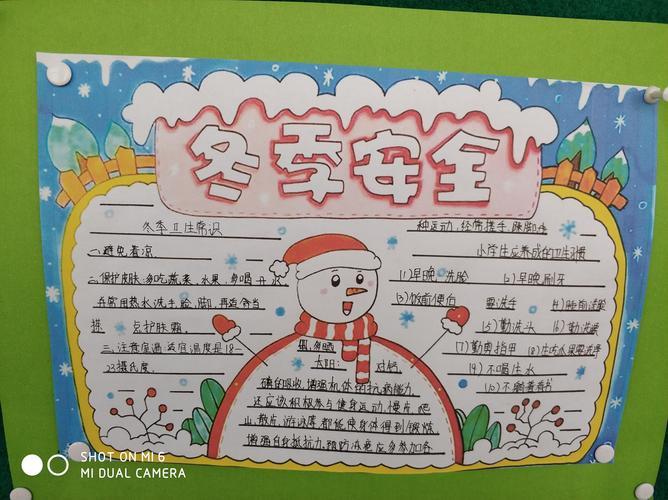 冬季安全
冬季卫生常识
一、避免着凉
二、保护皮肤:多吃蔬菜、水果、多喝开水
并常用热水洗手、脸、脚,再适当
搽
护肤霜
三、注意室温:适宜温度是18—
23摄氏度.
多晒
太阳:
磷的吸收,增强机体的抗病能力
还应该积极参与健身运动,慢共跑
山,散步、游泳等都能使身体得到锻炼
增强自身抵抗力,预防冻疮应多参加各
种运动,经常搓手、跺脚等
小学生应养成的卫生习惯
(1)早晚洗脸
2)早晚刷牙
(3)饭前便后
要洗手
(5)勤洗头
(6)勤洗澡
(7)勤剪指甲
(8)生吃水果需洗净
(9)不喝生水
SHOT ON MI 6
MI DUAL CAMERA